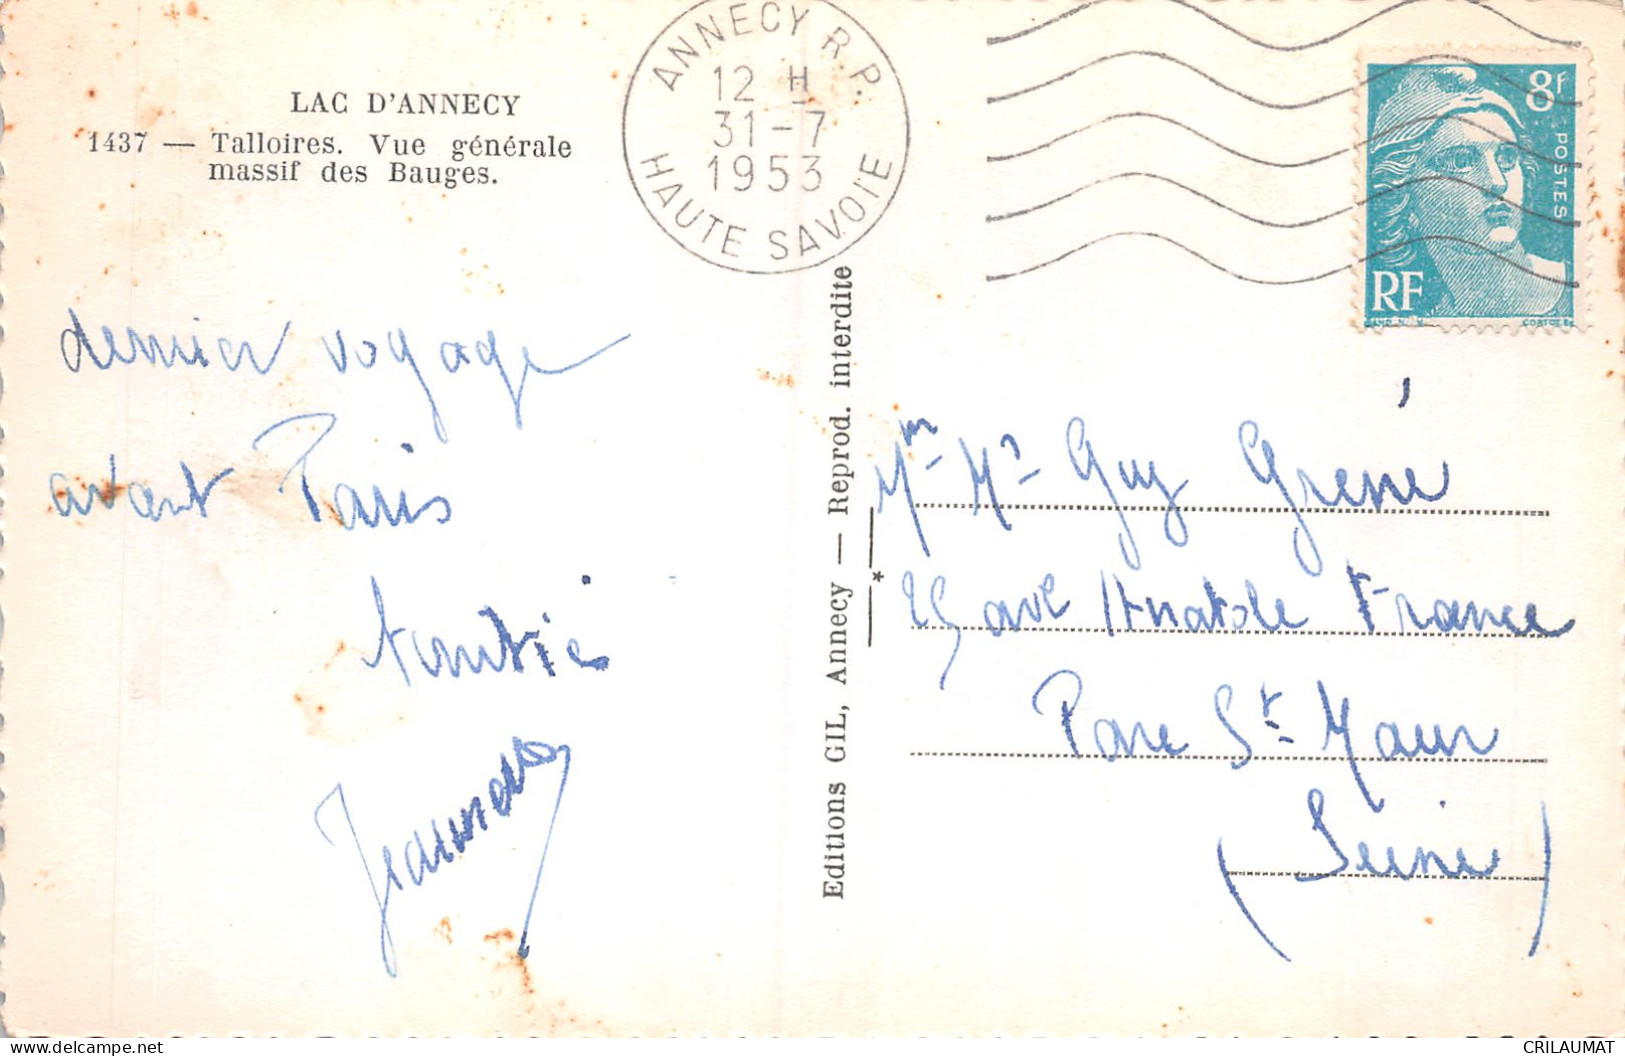 LAC D'ANNECY
1437 — Talloires. Vue générale
massif des Bauges.
ANNECY R.P.
12 H
31-7
1953
HAUTE SAVOIE
8F
POSTES
RF
dernier voyage
avant Paris
Amitiés
Editions GIL, Annecy — Reprod. interdite
*
Mr Me Guy
25 ave Anatole France
Parc St Maur
(Seine)
CRILAUMAT